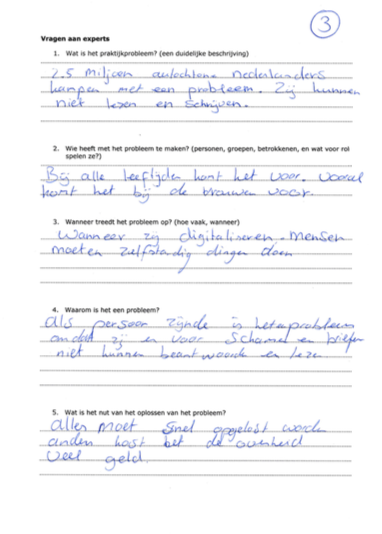 3
Vragen aan experts
1. Wat is het praktijkprobleem? (een duidelijke beschrijving)
2.5 Miljoen autochtone nederlanders
kampen met een probleem. Zij kunnen
niet lezen en schrijven.
2. Wie heeft met het probleem te maken? (personen, groepen, betrokkenen, en wat voor rol
spelen ze?)
Bij alle leeftijden komt het voor. vooral
komt het bij de vrouwen voor.
3. Wanneer treedt het probleem op? (hoe vaak, wanneer)
Wanneer zij digitaliseren. Mensen
moeten zelfstandig dingen doen
4. Waarom is het een probleem?
als persoon zijnde is het een probleem
omdat zij er voor schamen en brieven
niet kunnen beantwoorden en lezen.
5. Wat is het nut van het oplossen van het probleem?
alles moet snel opgelost worden
anders kost het de overheid
veel geld.